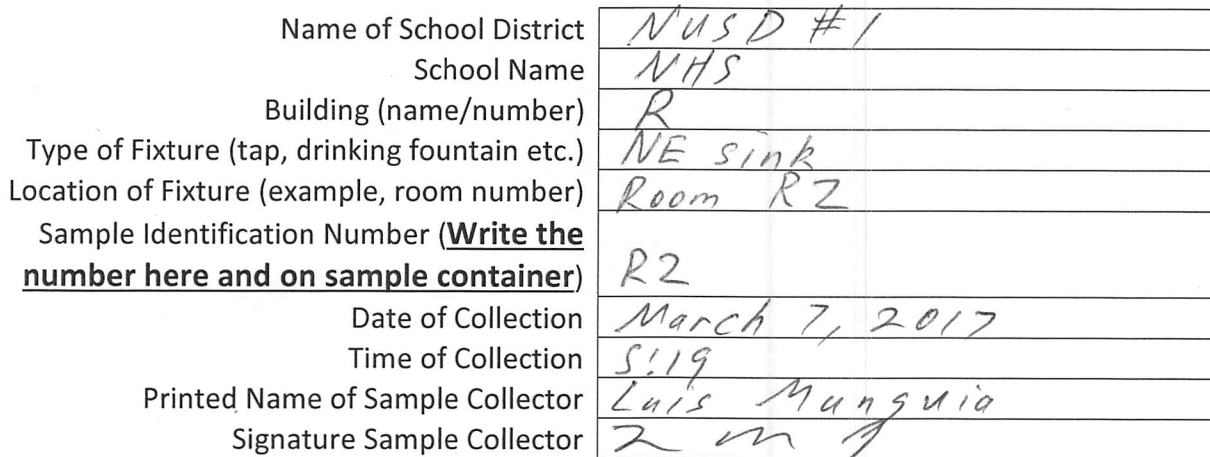 Name of School District NUSD #1
School Name NHS
Building (name/number) R
Type of Fixture (tap, drinking fountain etc.) NE sink
Location of Fixture (example, room number) Room R2
Sample Identification Number (Write the
number here and on sample container) R2
Date of Collection March 7, 2017
Time of Collection 5:19
Printed Name of Sample Collector Luis Munguia
Signature Sample Collector